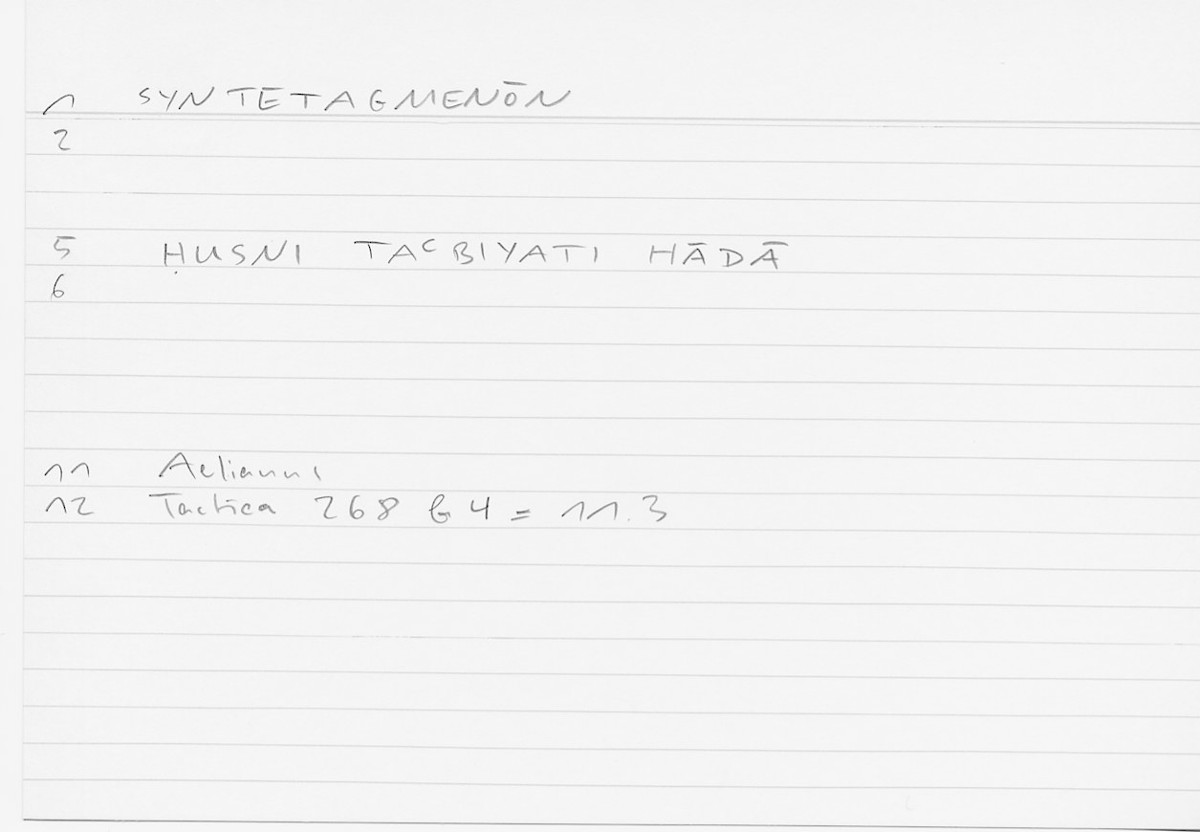 1 SYNTETAGMENŌN
2
5 ḤUSNI TAᶜBIYATI HĀDĀ
6
11 Aelianus
12 Tactica 268 b 4 = 11.3